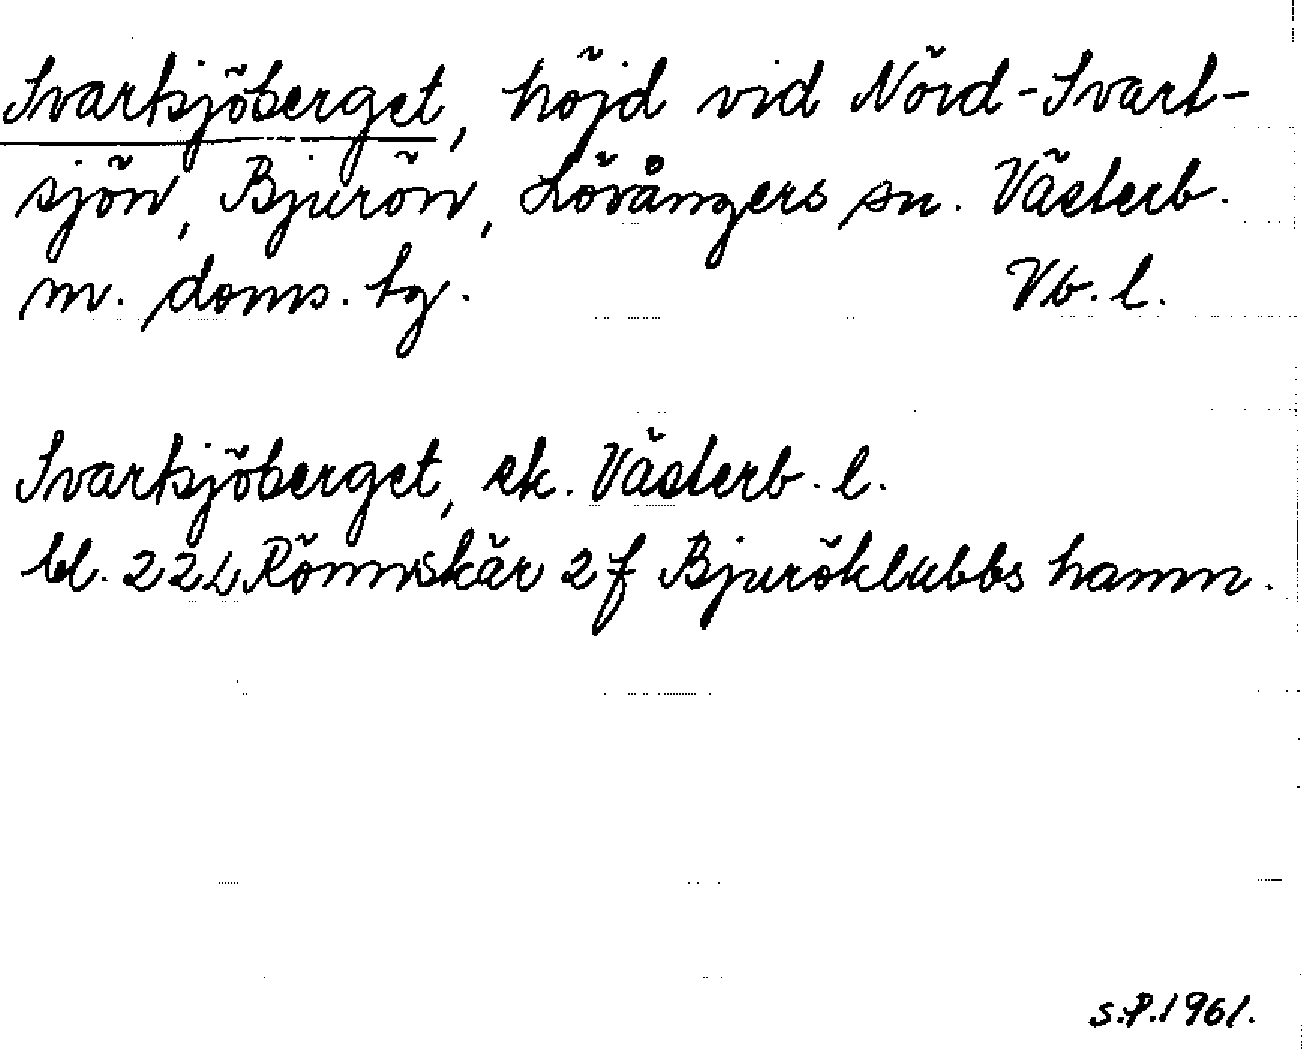 Svartsjöberget, höjd vid Nörd-Svart-
sjön, Bjurön, Lövångers sn. Västerb.
m. doms. tg. Vb. l.
Svartsjöberget, ek. Västerb. l.
bl. 22L Rönnskär 2f Bjuröklubbs hamn.
S.P. 1961.